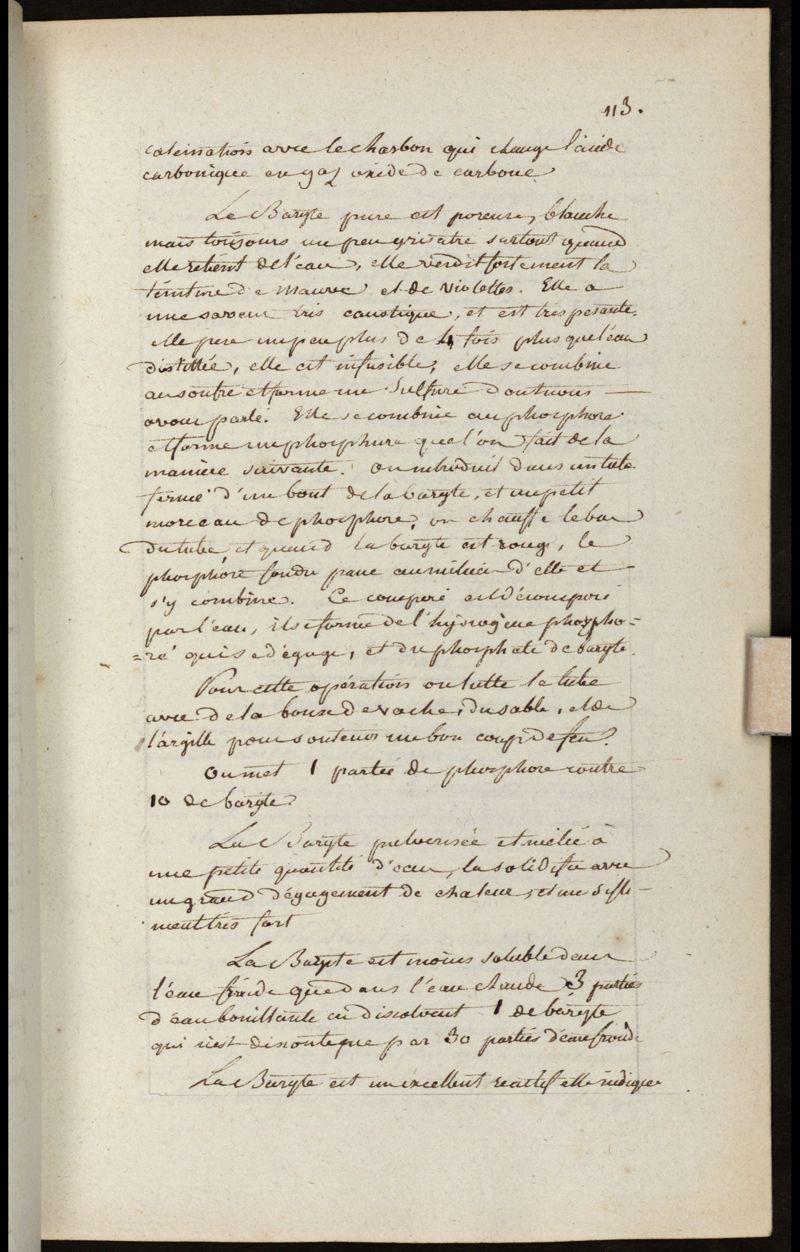 113.
calcination avec le charbon qui change l'acide
carbonique en gaz oxide de carbone
La Baryte pure est poreuse, blanche
mais toujours un peu grisatre surtout quand
elle retient de l'eau, elle verdit fortement la
teinture de mauve et de violettes. Elle a
une saveur tris caustique, et est tres pesante,
elle pese un peu plus de 4 fois plus que l'eau
distillée, elle est infusible, elle se combine
au soufre et forme un sulfure dont nous —
avons parlé. Elle se combine au phosphore
et forme un phosphure que l'on fait de la
maniere suivante. On introduit dans un tube
fermé d'un bout de la baryte, et un petit
morceau de phosphore, on chauffe le bas
du tube, et quand la baryte est rouge, le
phosphore fondu passe au milieu d'elle et —
s'y combine. Ce composé est décomposé
par l'eau, il se forme de l'hydrogène phospho=
=ré qui se dégage, et du phosphate de baryte.
Pour cette opération on lutte le tube
avec de la bouse de vache, du sable, et de
l'argille pour soutenir un bon coup de feu.
On met 1 partie de phosphore contre
10 de baryte
La Baryte pulverisée et mêlée à
une petite quantité d'eau, la solidifie avec
un grand dégagement de chaleur, et un siffle-
ment tris fort
La Baryte est moins soluble dans
l'eau froide que dans l'eau chaude 3 parties
d'eau bouillante en dissolvent 1 de baryte
qui n'est dissoute que par 30 parties d'eau froide
La Baryte est un excellent reactif elle indique